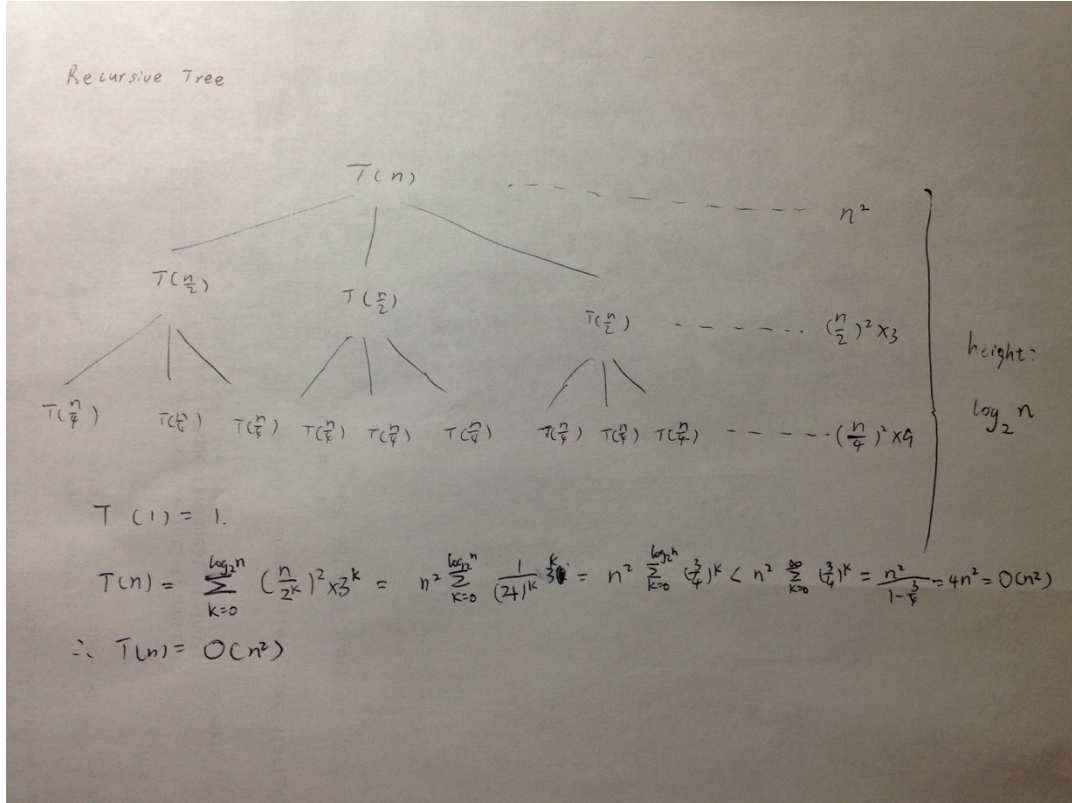 Recursive Tree
T(n) - - - - - - n²
T(n/2) T(n/2) T(n/2) - - - - - - (n/2)² ×3
T(n/4) T(n/4) T(n/4) T(n/4) T(n/4) T(n/4) T(n/4) T(n/4) T(n/4) - - - - - - (n/4)² ×9
height:
log₂ n
T(1) = 1.
T(n) = ∑_{k=0}^{log₂n} (n/2^k)² ×3^k = n² ∑_{k=0}^{log₂n} 1/(4)^k 3^k = n² ∑_{k=0}^{log₂n} (3/4)^k < n² ∑_{k=0}^{∞} (3/4)^k = n²/(1-3/4) = 4n² = O(n²)
∴ T(n) = O(n²)